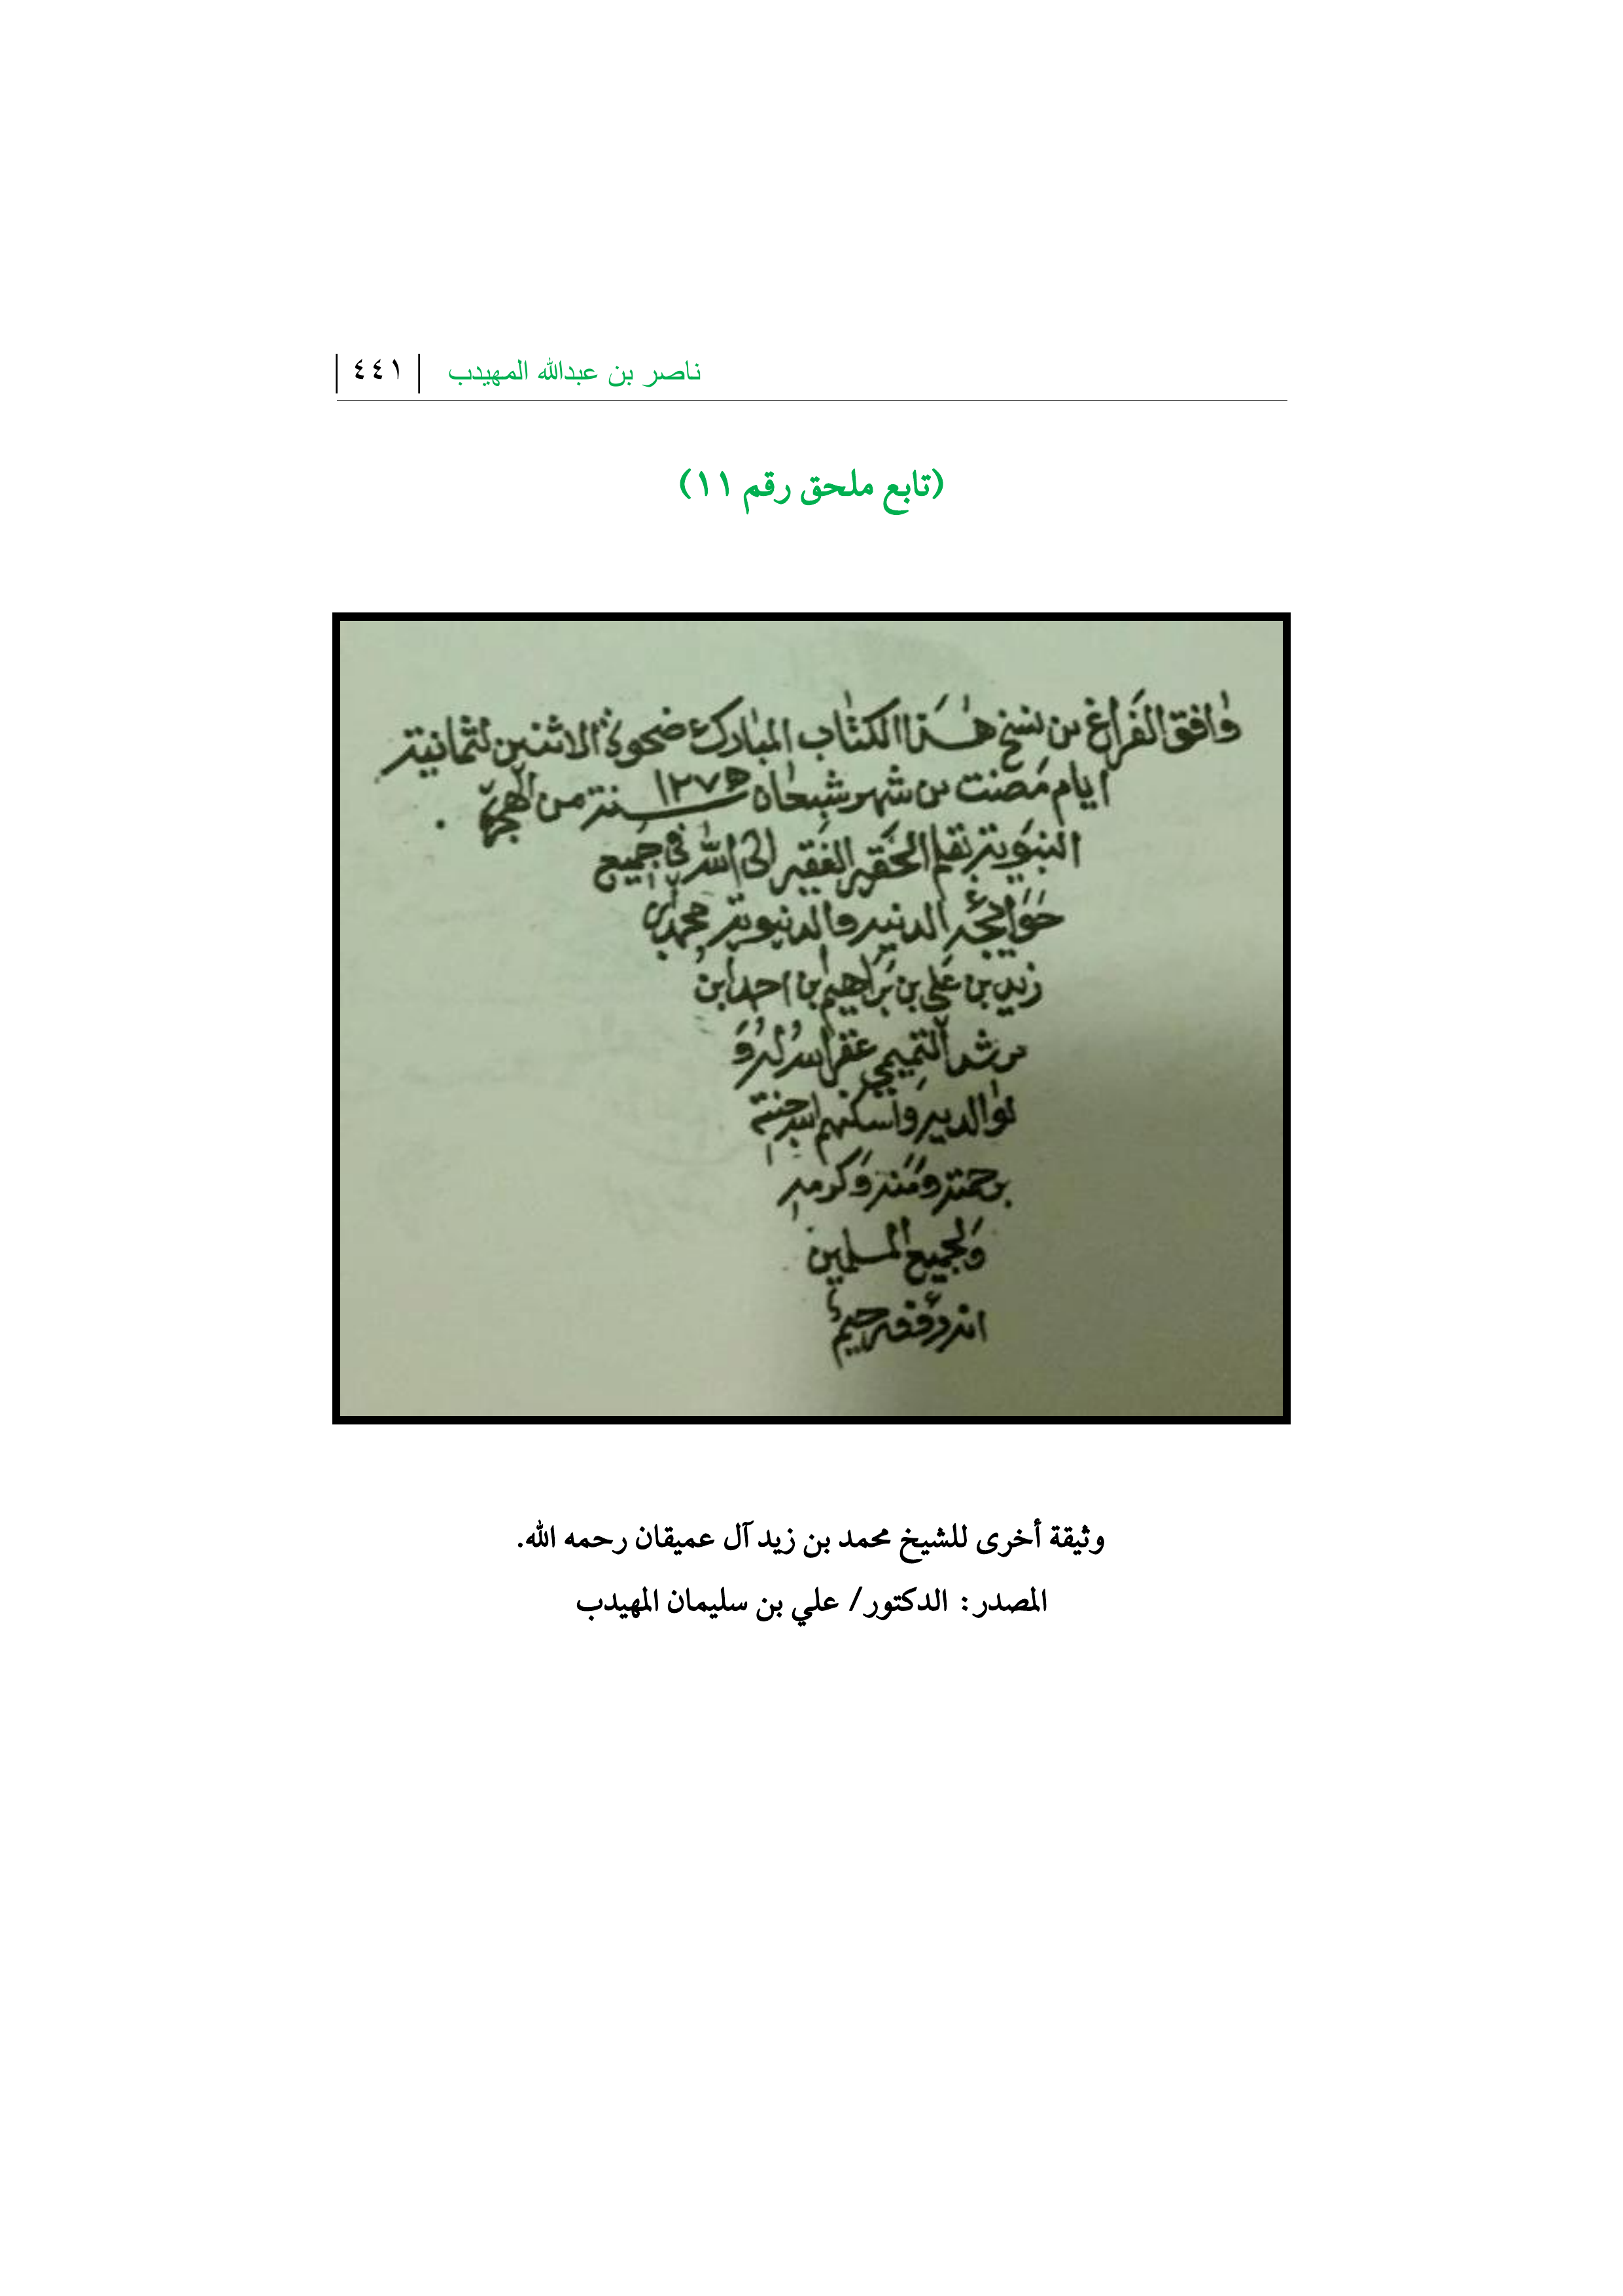 ناصر بن عبدالله المهيدب | ٤٤١ |
(تابع ملحق رقم ١١)
وافق الفراغ من نسخ هذا الكتاب المبارك ضحوة الاثنين لثمانية
ايام مضت من شهر شعبان سنة ١٢٧٥ من الهجرة
النبوية بقلم الحقير الفقير الى الله في جميع
حوائجه الدينيه والدنيوية محمد ابن
زيد بن علي بن براهيم بن احمد ابن
مرشد التميمي غفر الله له و
لوالديه واسكنهم الله جنته
برحمته ومنه وكرمه
ولجميع المسلمين
انه رحيم
وثيقة أخرى للشيخ محمد بن زيد آل عميقان رحمه الله.
المصدر: الدكتور/ علي بن سليمان المهيدب